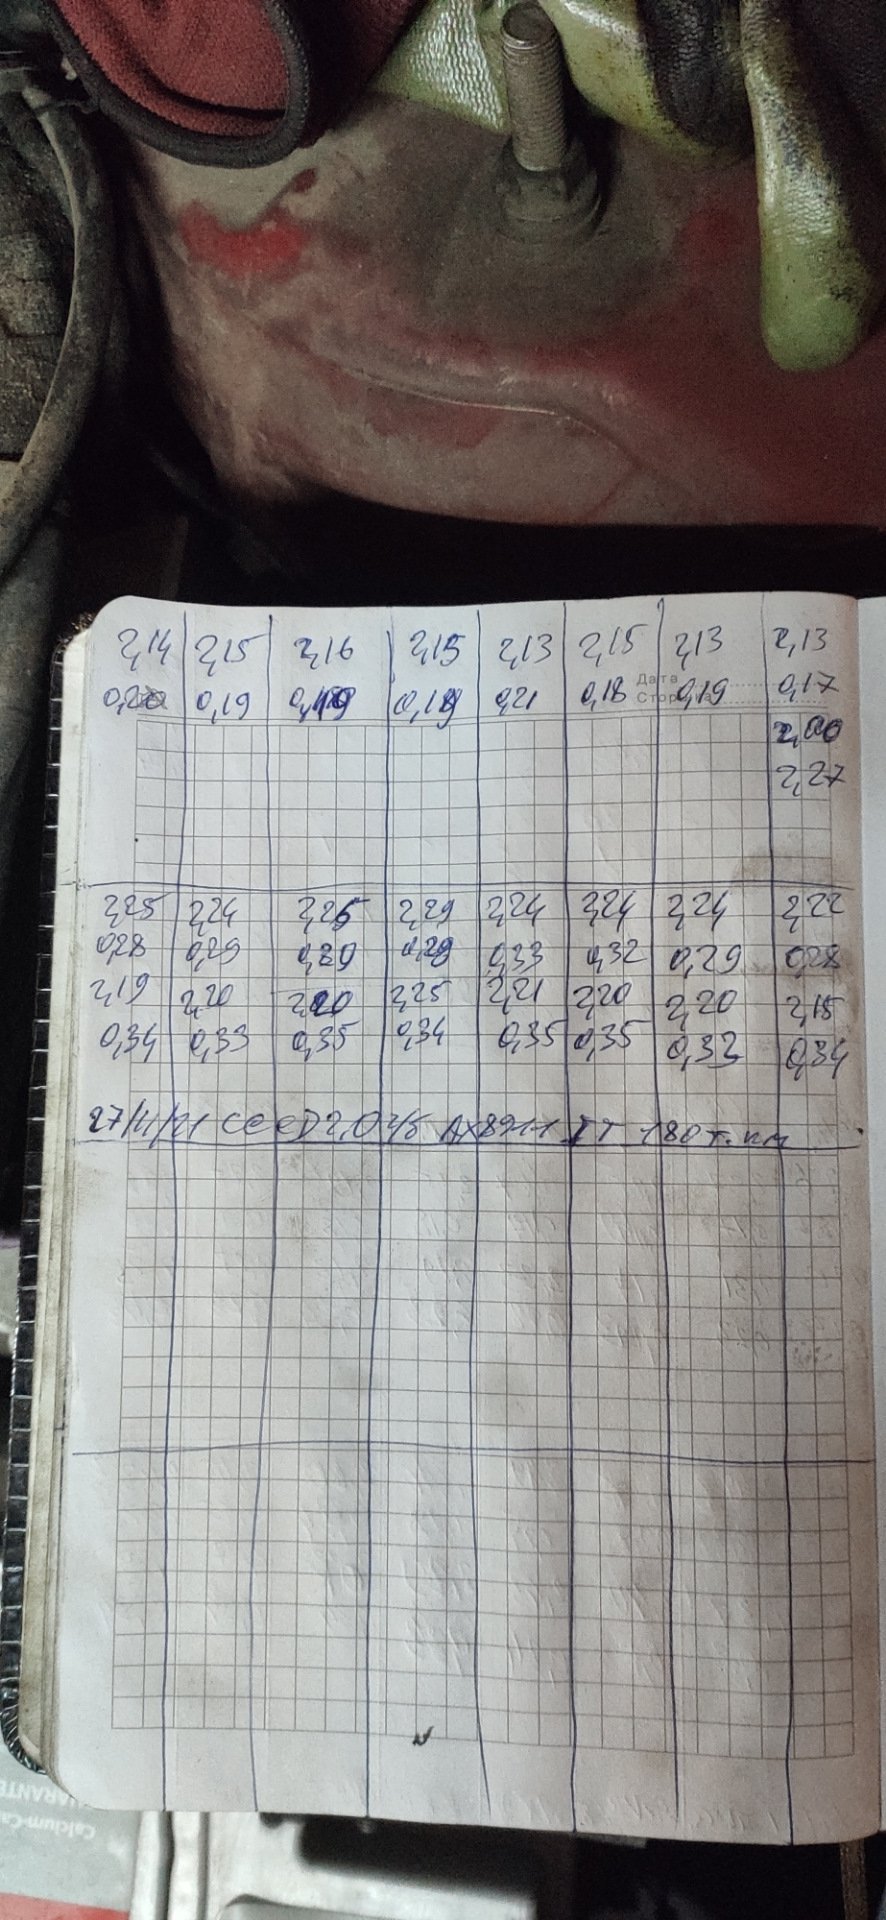 2,14 2,15 2,16 2,15 2,13 2,15 2,13 2,13
0,20 0,19 0,19 0,19 0,21 0,18 0,19 0,17
Дата
2,00
2,27
2,25 2,24 2,25 2,29 2,24 2,24 2,24 2,22
0,28 0,29 0,29 0,29 0,33 0,32 0,29 0,28
2,19 2,20 2,20 2,25 2,21 2,20 2,20 2,15
0,34 0,33 0,35 0,34 0,35 0,35 0,33 0,34
27/4/21 CEED 2,0 180 т.км
Calcium-Ca